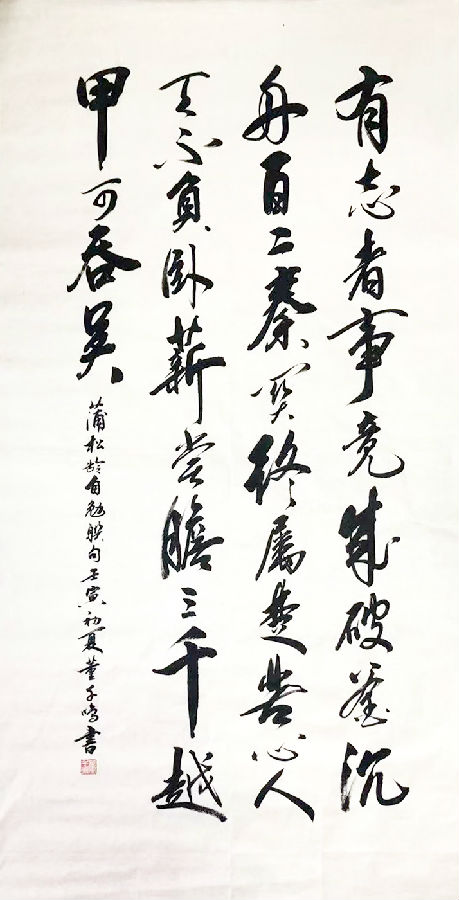 有志者事竟成破釜沉
舟百二秦关终属楚苦心人
天不负卧薪尝胆三千越
甲可吞吴
蒲松龄自勉联句壬寅初夏董子鸣书